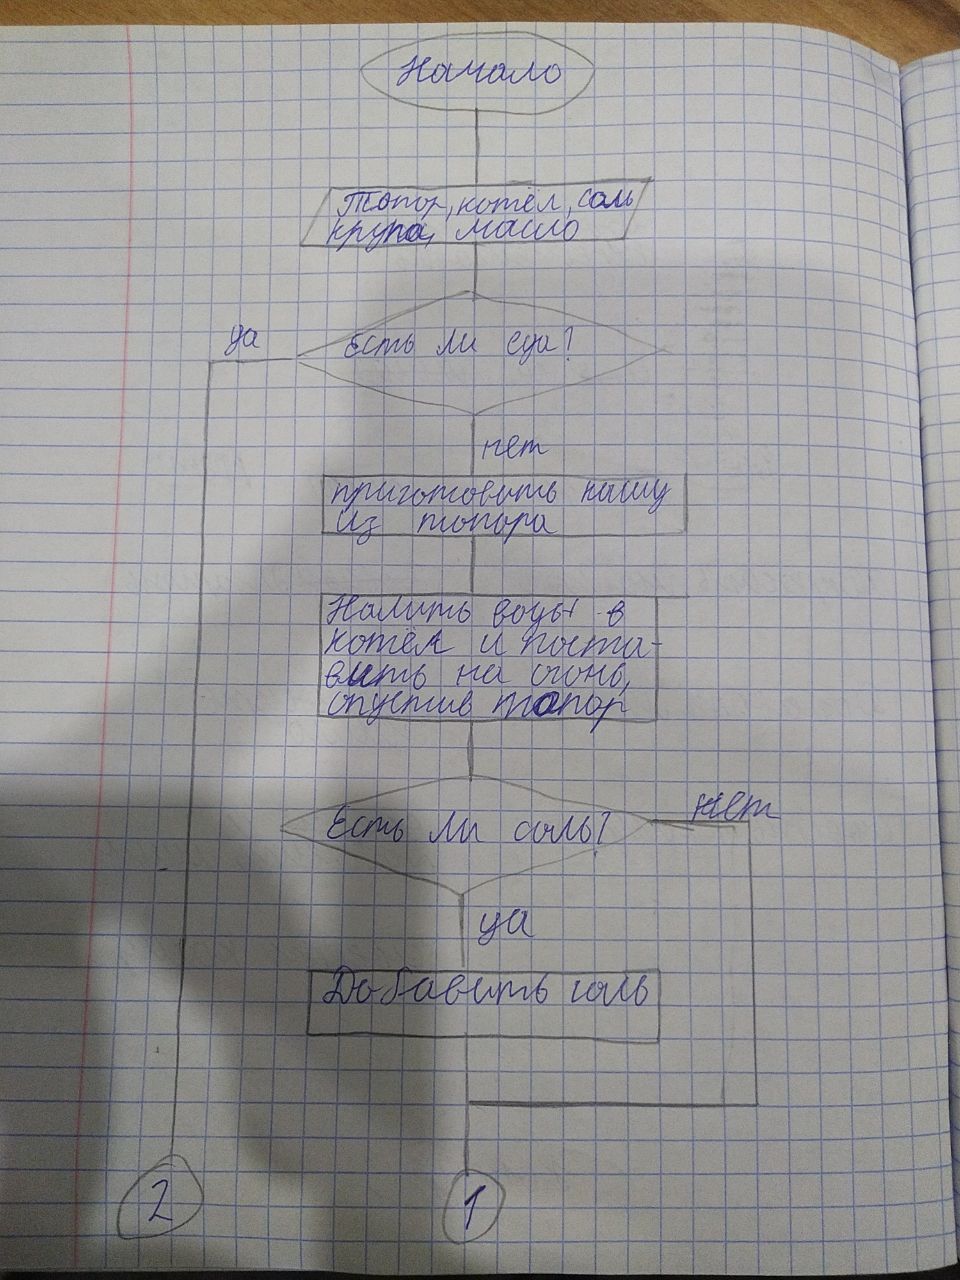 Начало
Топор, котёл, соль
крупа, масло
да
Есть ли еда?
нет
приготовить кашу
из топора
Налить воды в
котёл и поста-
вить на огонь,
опустив топор
Есть ли соль?
нет
да
Добавить соль
2
1